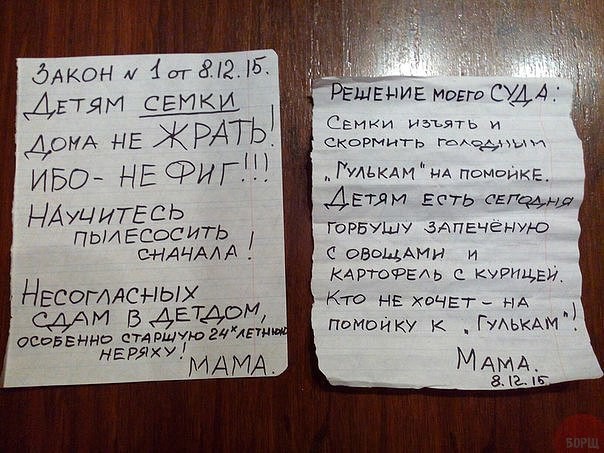 Закон № 1 от 8.12.15.
Детям семки
дома не ЖРАТЬ!
ибо - не фиг!!!
Научитесь
пылесосить
сначала!
Несогласных
сдам в детдом,
особенно старшую 24х летнюю
неряху!
Мама.
Решение моего СУДА:
Семки изъять и
скормить голодным
„Гулькам" на помойке.
Детям есть сегодня
горбушу запечёную
с овощами и
картофель с курицей.
Кто не хочет - на
помойку к „Гулькам"!
Мама.
8.12.15
БОРЩ